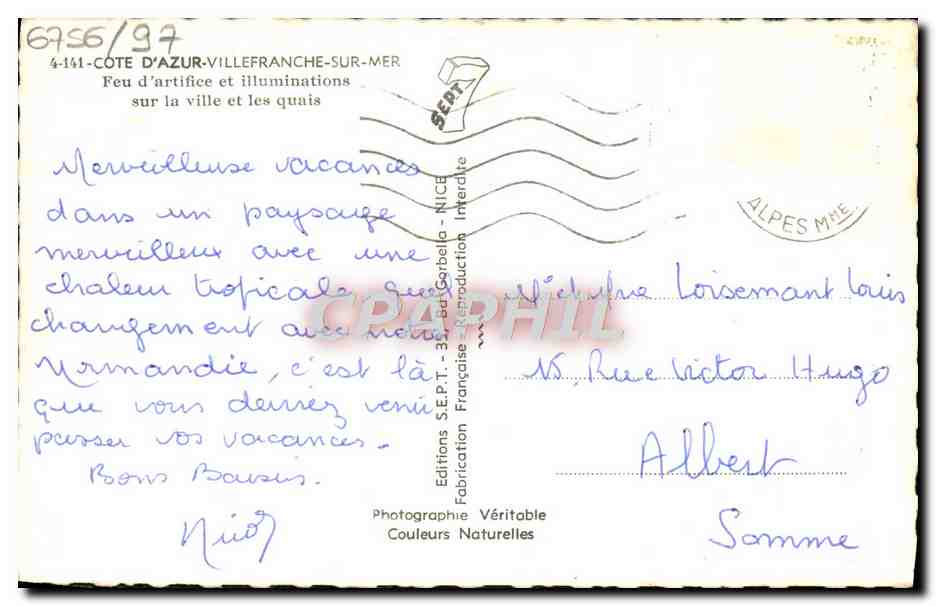 6756/97
4-141-COTE D'AZUR-VILLEFRANCHE-SUR-MER
Feu d'artifice et illuminations
sur la ville et les quais
SEPT
7
ALPES MME.
Merveilleuse vacances
dans un paysage
merveilleux avec une
chaleur tropicale quel
changement avec notre
Normandie, c'est là
que vous devriez venir
passer vos vacances.
Bons Baisers.
Editions S.E.P.T. - Bd Gorbella - NICE
Fabrication Française - Reproduction Interdite
CPAPHIL
Loisemant Louis
15, Rue Victor Hugo
Albert
Somme
Photographie Véritable
Couleurs Naturelles